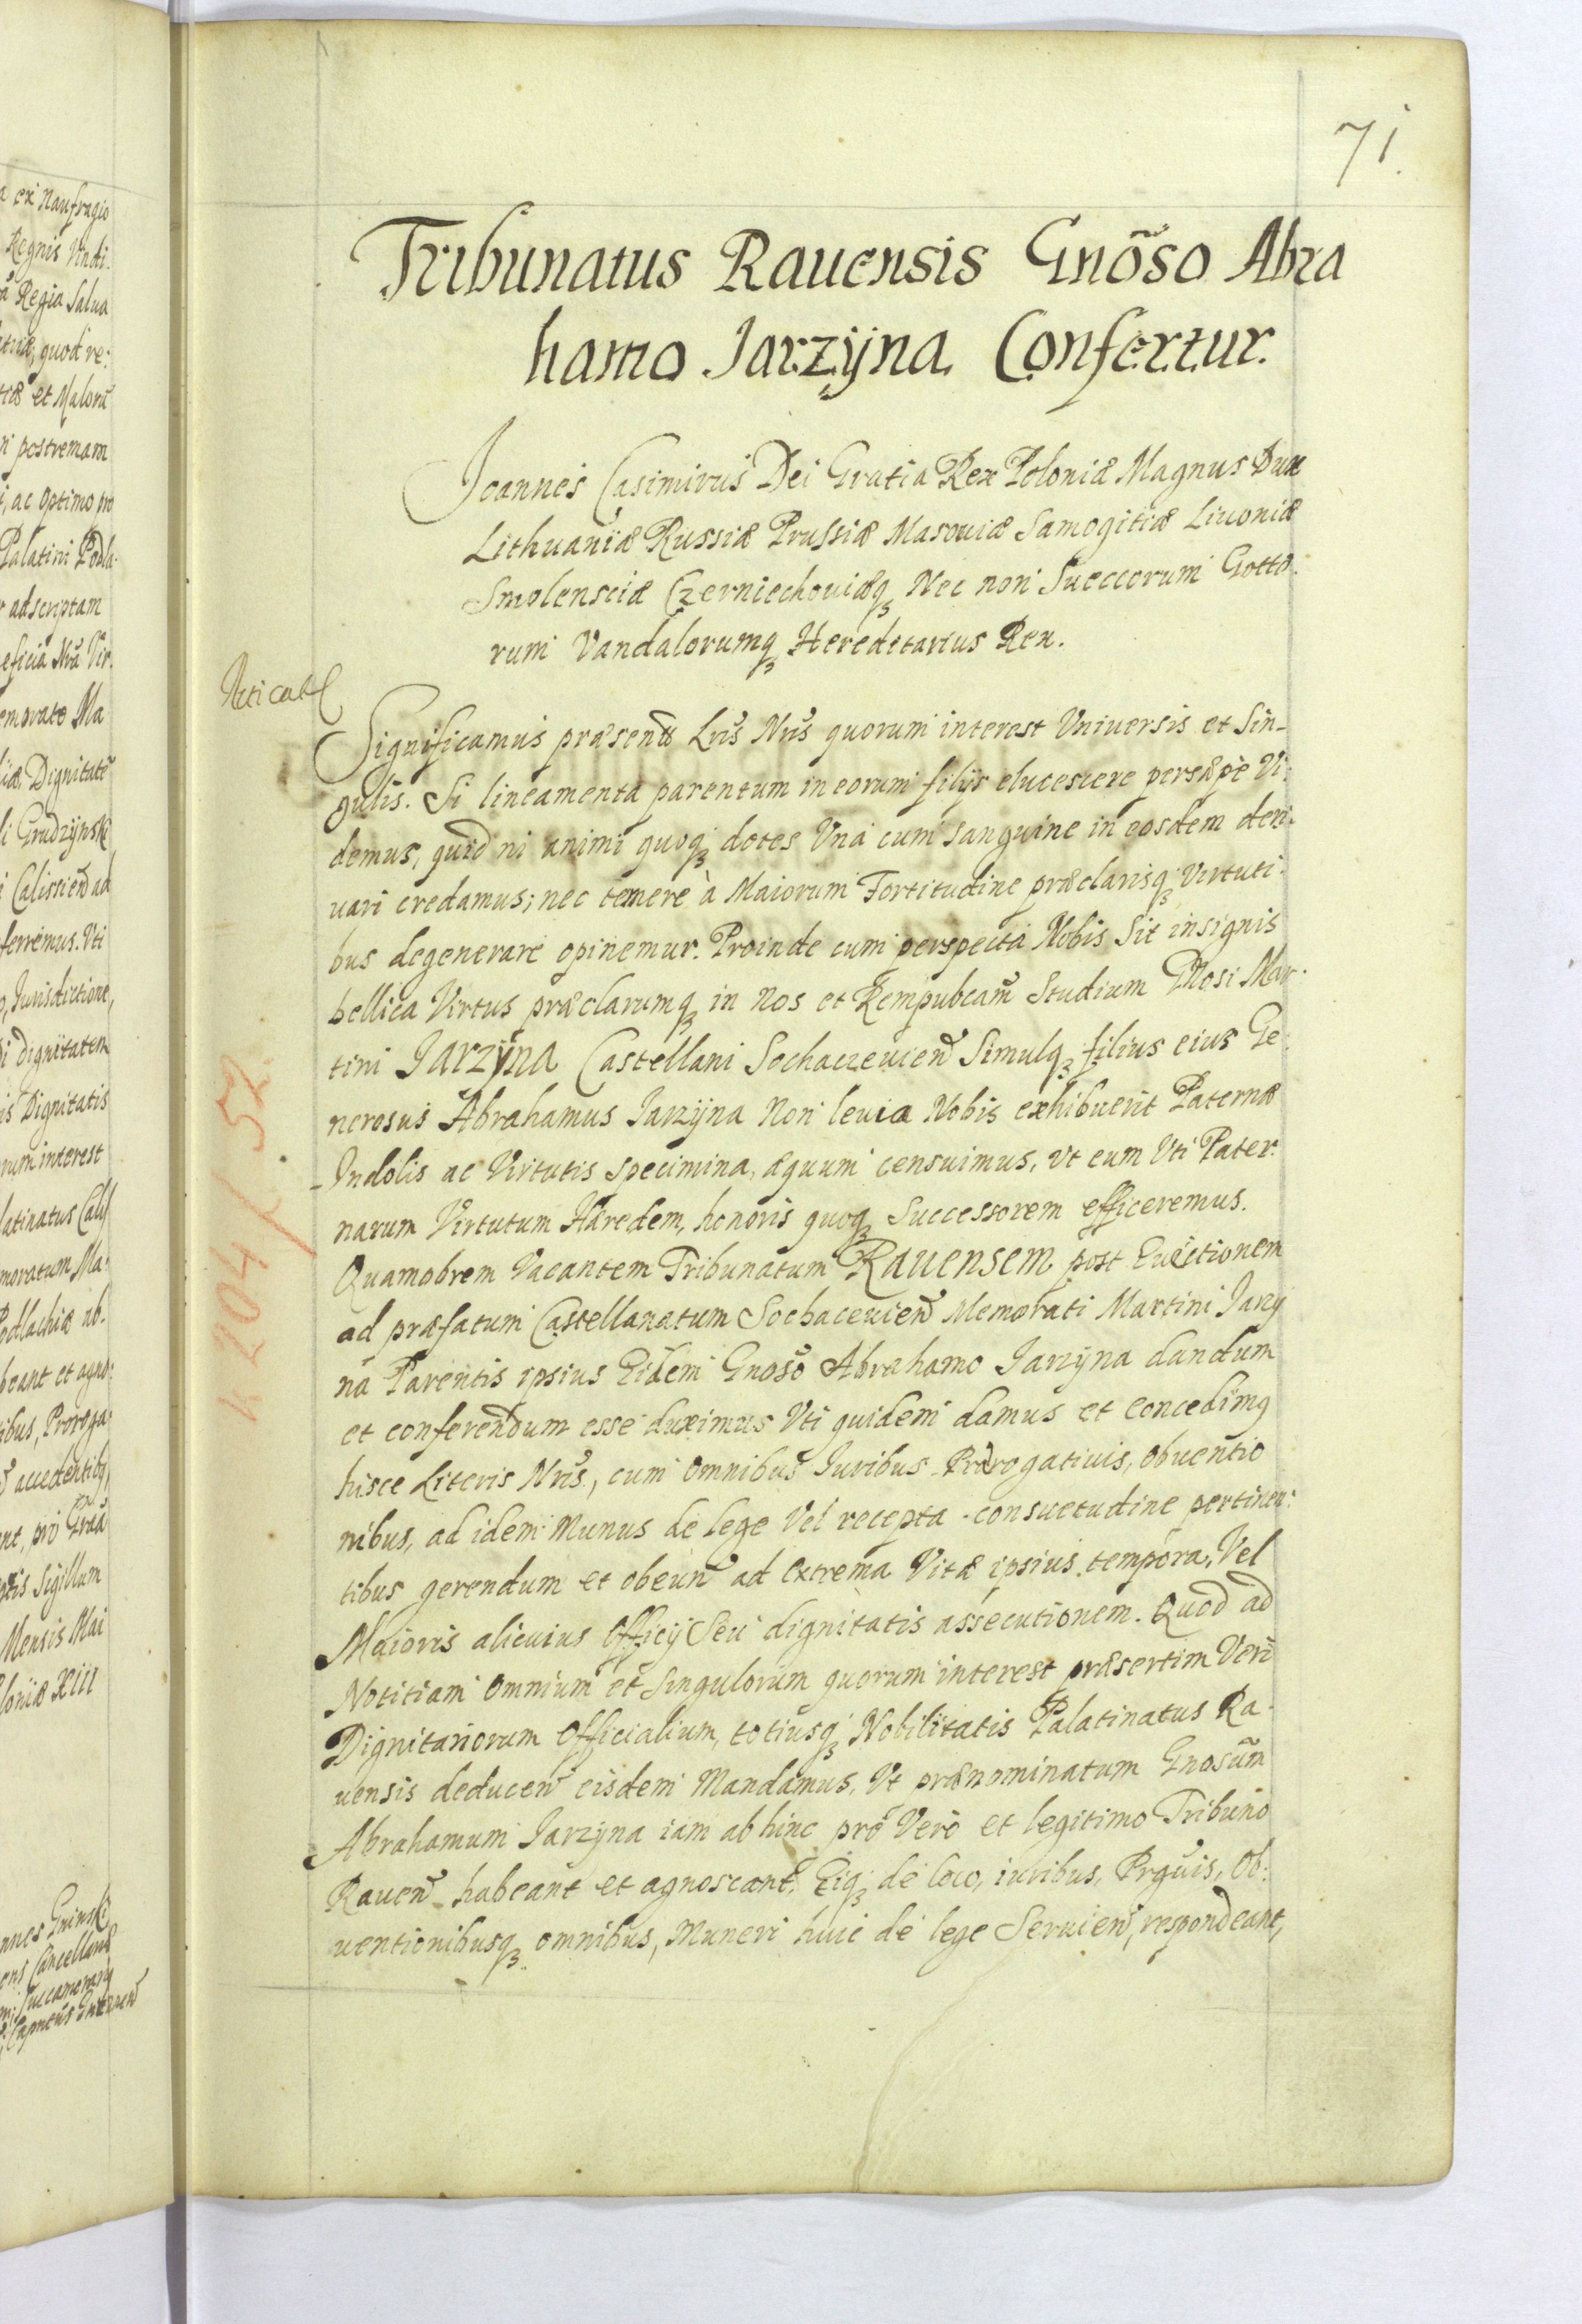 71.
Tribunatus Rauensis Gnõso Abra
hamo Jarzÿna Confertur.
Joannes Casimirus Dei Gratia Rex Poloniæ Magnus Dux
Lithuaniæ Russiæ Prussiæ Masouiæ Samogitiæ Liuoniæ
Smolensciæ Czerniechouiæqȝ Nec non Sueccorum Gotto.
rum Vandalorumqȝ Heredetarius Rex.
Significamus præsentb Lris Nris quorum interest Vniuersis et Sin-
gulis. Si lineamenta parentum in eorum filijs elucescere persæpè Vi:
demus, quid ni animi quoqȝ dotes Vna cum sanguine in eosdem deri:
uari credamus; nec temerè à Maiorum Fortitudine præclarisqȝ Virtuti:
bus degenerare opinemur. Proinde cum perspecta Nobis Sit insignis
bellica Virtus præclarumqȝ in Nos et Rempubcam Studium Gnosi Mar:
tini Jarzÿna Castellani Sochaczeuien Simulqȝ filius eius Ge:
nerosus Abrahamus Jarzÿna Non leuia Nobis exhibuerit Paternæ
Indolis ac Virtutis specimina, æquum censuimus, Vt eum Vti Pater:
narum Virtutum Hæredem, honoris quoqȝ Successorem efficeremus.
Quamobrem Vacantem Tribunatum Rauensem post Euectionem
ad præfatum Castellanatum Sochaceuien Memorati Martini Jarzy
na Parentis ipsius Eidem Gnoso Abrahamo Jarzÿna dandum
et conferendum esse duximus Vti quidem damus et concedimq
hisce Literis Nris, cum Omnibus Juribus Prærogatiuis, obuentio
nibus, ad idem Munus de lege Vel recepta consuetudine pertinen:
tibus gerendum et obeun ad extrema Vitæ ipsius tempora, Vel
Maioris alicuius Officij Seu dignitatis assecutionem. Quod ad
Notitiam Omnium et Singulorum quorum interest præsertim Vero
Dignitariorum Officialium, totiusqȝ Nobilitatis Palatinatus Ra-
uensis deducen eisdem Mandamus, Vt prænominatum Gnosum
Abrahamum Jarzyna iam ab hinc pro Vero et legitimo Tribuno
Rauen habeant et agnoscant, Eiqȝ de loco, iuribus, Prguis, Ob:
uentionibusqȝ omnibus, Muneri huic de lege Seruien, respondeant,
204/52
a ex Naufragio
Regnis Vindi:
Regia Salua
quod re:
et Malorũ
postremam
ac Optimo pro
Palatini Podla:
adscriptam
eficia Nrã Vir.
emorato Ma
Dignitatẽ
Grudzÿnski
Calissien ad
ferremus. Vti
Jurisdictione,
dignitatem
is Dignitatis
rum interest
latinatus Calis
moratum Ma:
odlachiæ ab.
beant et agno:
ibus, Proroga:
accedentibq
nt, pro Gratia
Sigillum
Mensis Mai
loniæ XIII
nnes Gninski
ens Cancellariæ